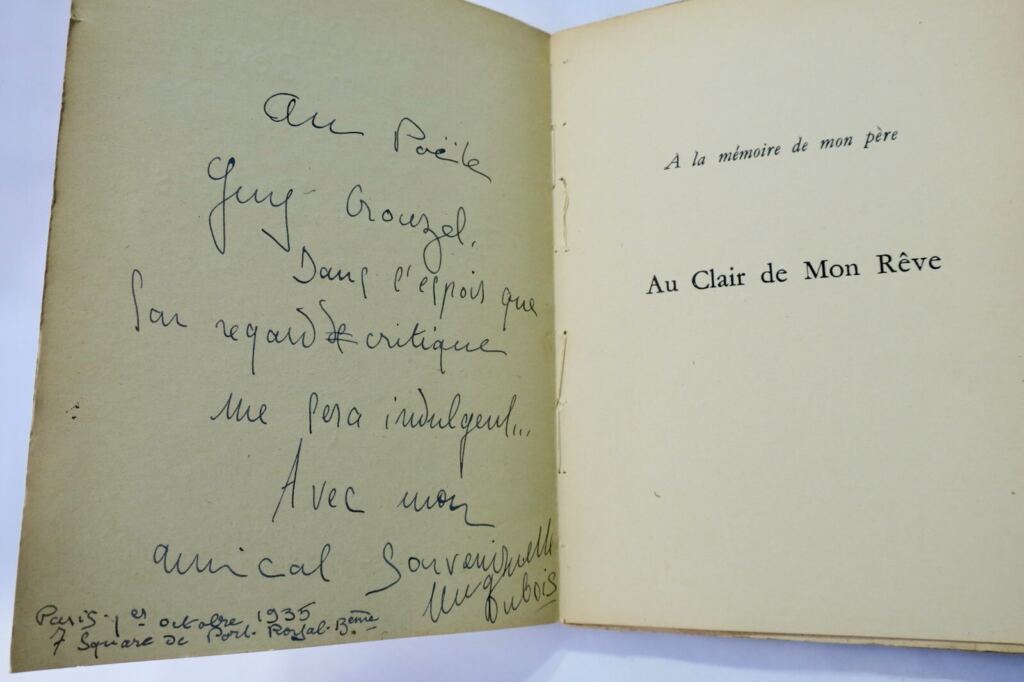 Au Poète
Guy Crouzel,
Dans l'espoir que
son regard de critique
me sera indulgent...
Avec mon
amical souvenir
Huguette
Dubois
Paris - 1er octobre 1935
7 Square de Port-Royal-13ème
A la mémoire de mon père
Au Clair de Mon Rêve